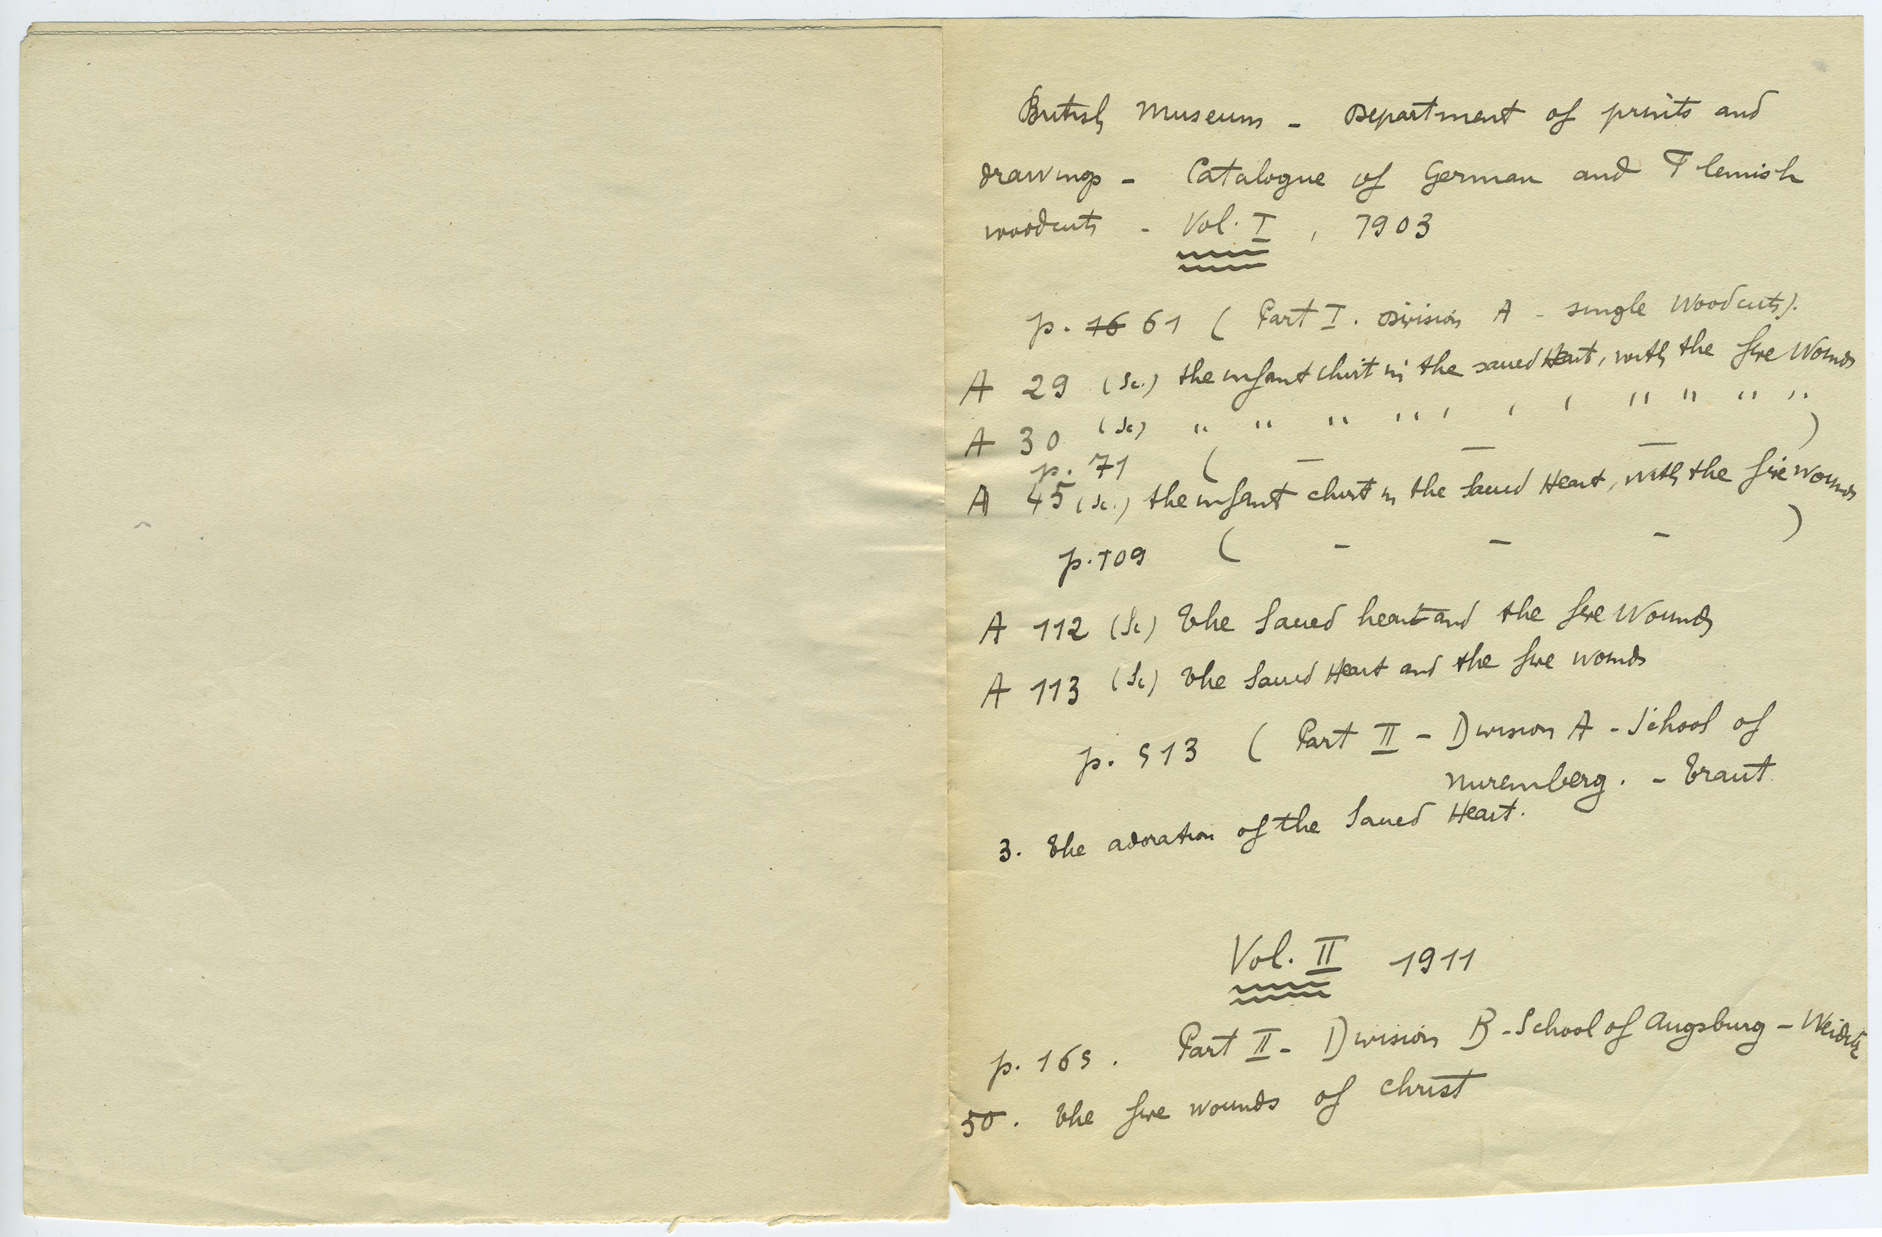 British Museum - Department of prints and
drawings - Catalogue of German and Flemish
woodcuts - Vol. I , 1903
p. 16 61 ( Part I. Division A - single Woodcuts).
A 29 (Sc.) the infant christ in the sacred Heart, with the five Wounds
A 30 (Sc) " " " " ' ' ' " " " "
p. 71 ( - - - )
A 45 (Sc.) the infant christ in the Sacred Heart, with the five wounds
p. 109 ( - - - )
A 112 (Sc) The Sacred heart and the five Wounds
A 113 (Sc) The Sacred Heart and the five wounds
p. 513 ( Part II - Division A - School of
Nuremberg. - Traut
3. The adoration of the Sacred Heart.
Vol. II 1911
p. 165. Part II - Division B - School of Augsburg - Weiditz
50. The five wounds of christ